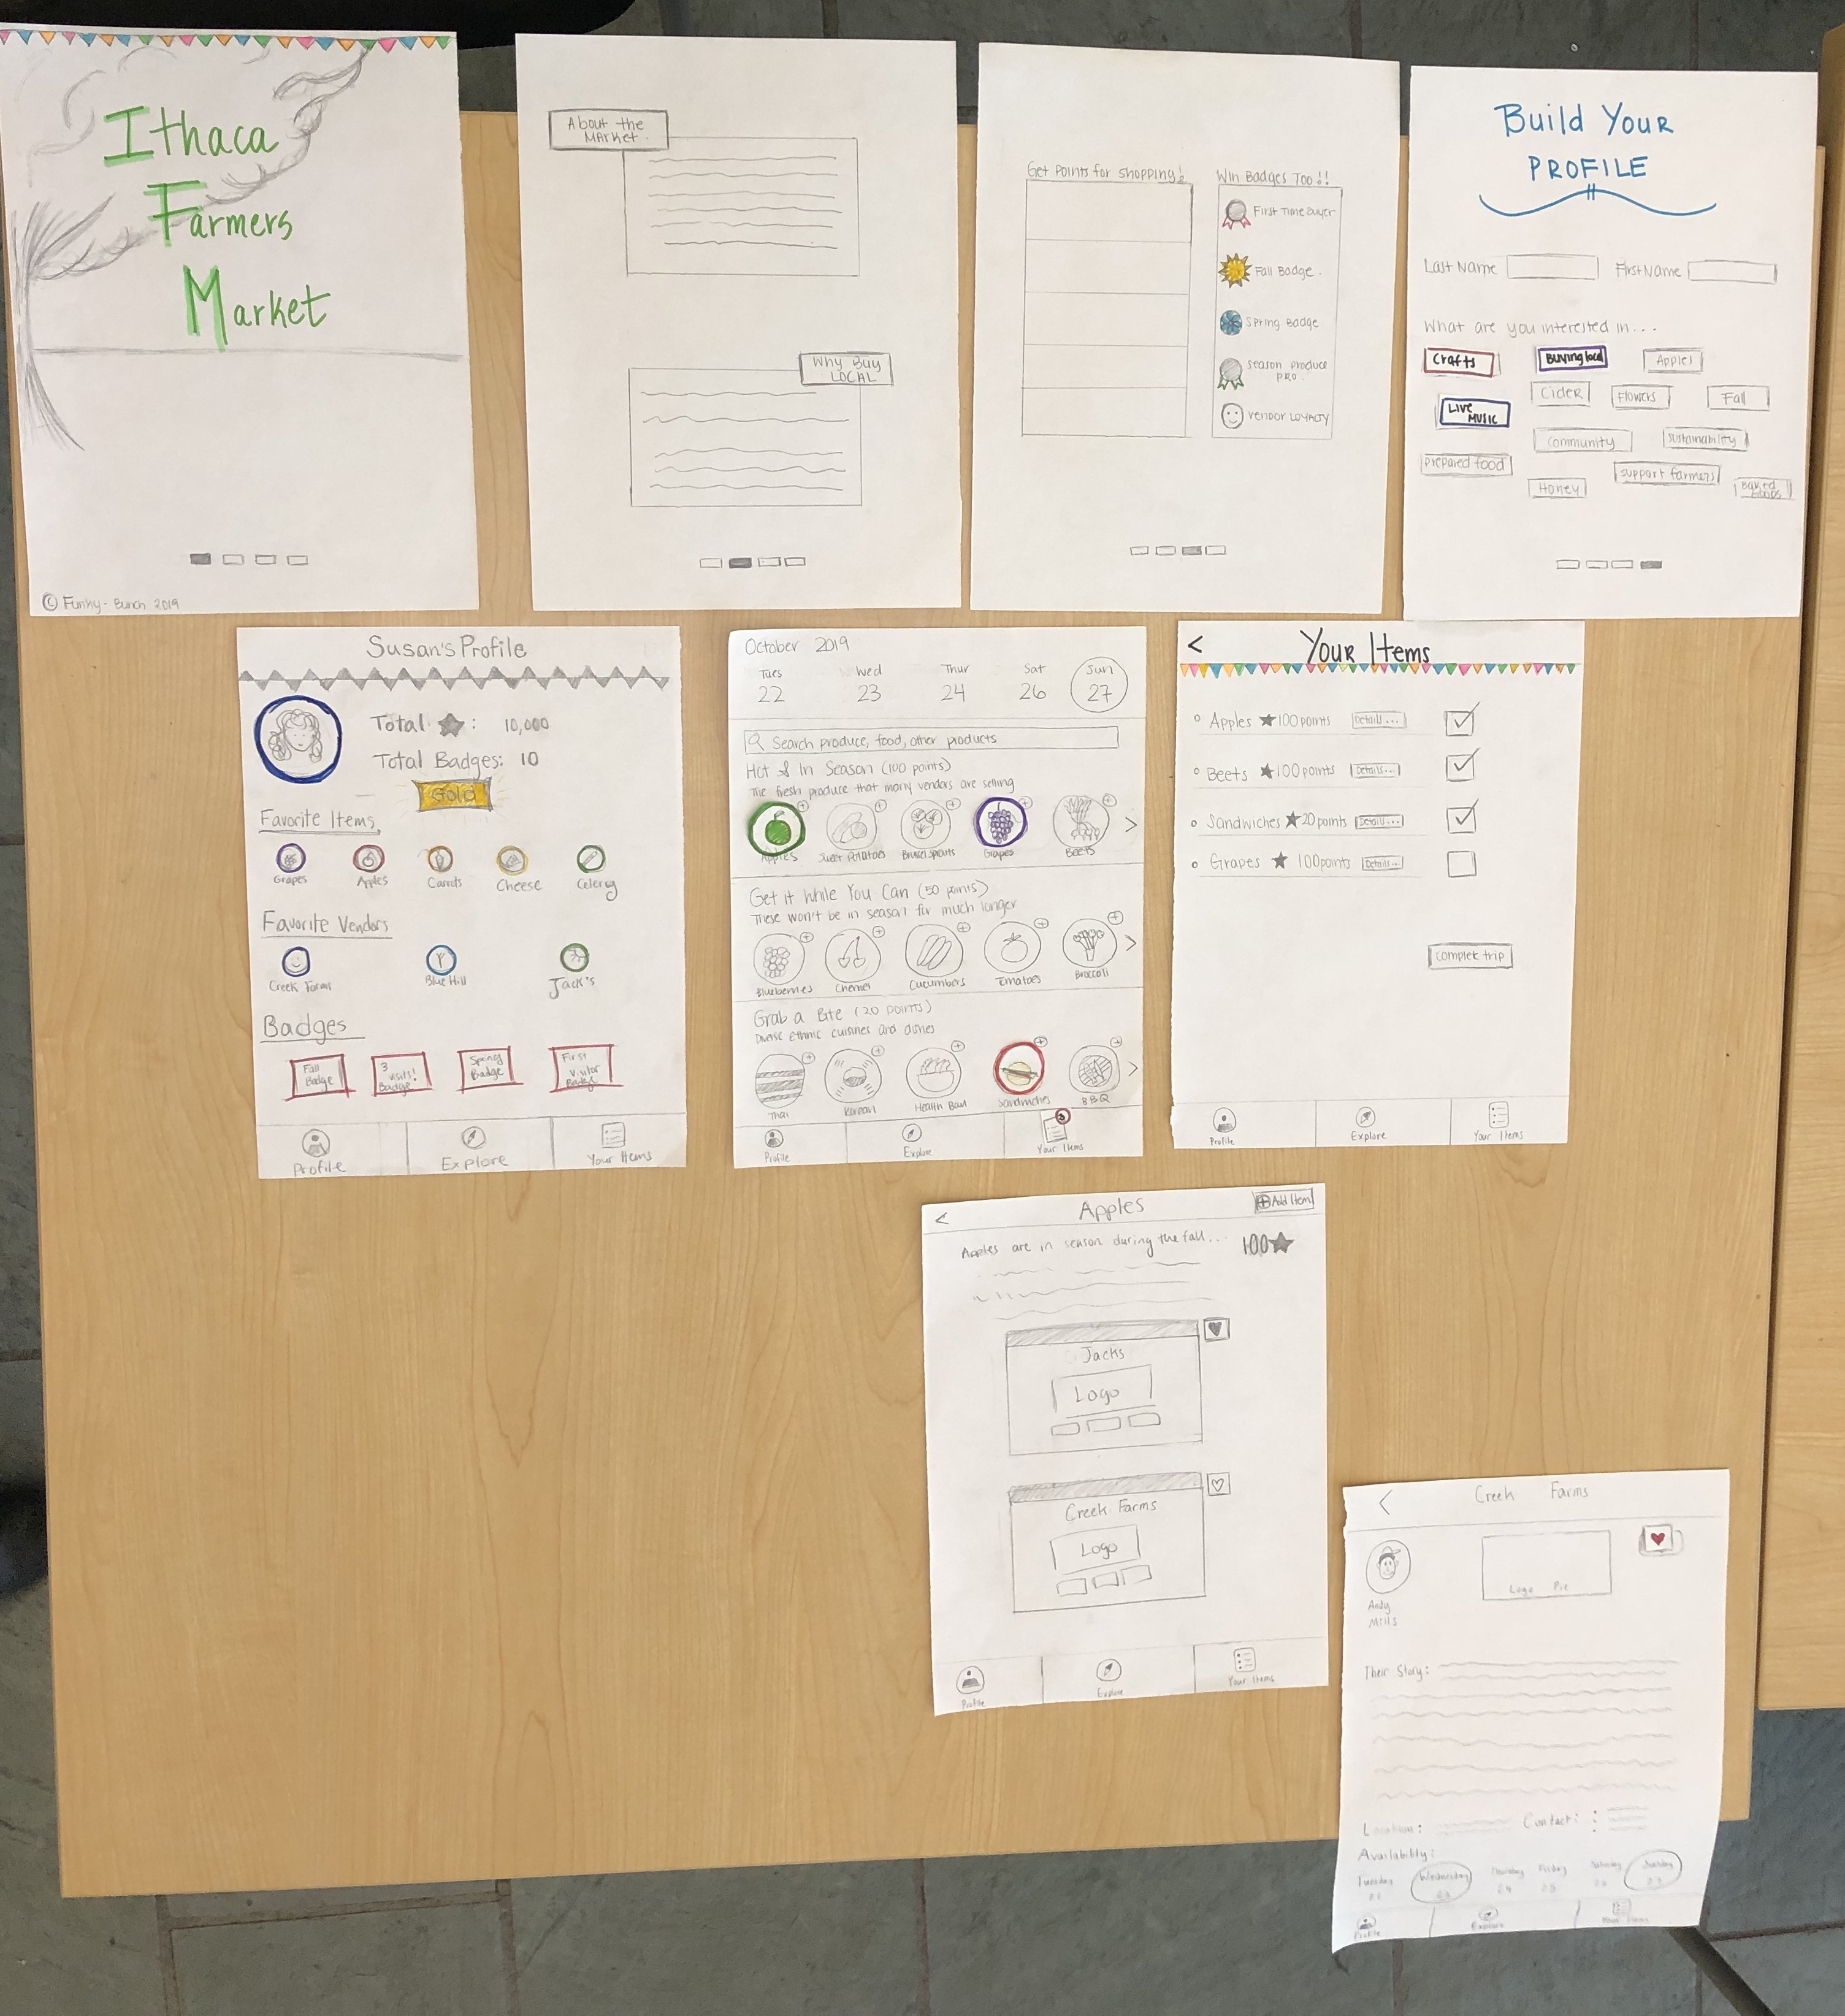 Ithaca
Farmers
Market
© Funky-Bunch 2019
About the
Market.
Why Buy
LOCAL
Get Points for Shopping!
Win Badges Too!!
First Time Buyer
Fall Badge.
Spring Badge
Season Produce
PRO.
Vendor LOYALTY
Build Your
PROFILE
Last Name
First Name
What are you interested in...
Crafts
Buying local
Apples
Cider
Flowers
Fall
Live
Music
Community
Sustainability
Prepared food
Support farmers
Honey
Baked
Goods
Susan's Profile
Total ★: 10,000
Total Badges: 10
Gold
Favorite Items
Grapes
Apples
Carrots
Cheese
Celery
Favorite Vendors
Creek Farms
Blue Hill
Jack's
Badges
Fall
Badge
3
visits!
Badge
Spring
Badge
First
Visitor
Badge
Profile
Explore
Your Items
October 2019
Tues Wed Thur Sat Sun
22 23 24 26 27
Search produce, food, other products
Hot & In Season (100 points)
The fresh produce that many vendors are selling
Apples
Sweet Potatoes
Brussel sprouts
Grapes
Beets
Get it While You Can (50 points)
These won't be in season for much longer
Blueberries
Cherries
Cucumbers
Tomatoes
Broccoli
Grab a Bite (20 points)
Diverse Ethnic cuisines and dishes
Thai
Korean
Health Bowl
Sandwiches
BBQ
3
Profile
Explore
Your Items
< Your Items
Apples ★100 points Details... 
Beets ★100 points Details...
Sandwiches ★20 points Details...
Grapes ★ 100 points Details...
Complete trip
Profile
Explore
Your Items
< Apples
Add Item
Apples are in season during the fall... 100★
Jacks
Logo
Creek Farms
Logo
Profile
Explore
Your Items
< Creek Farms
Andy
Mills
Logo Pic
Their Story:
Location:
Contact:
Availability:
Tuesday Wednesday Thursday Friday Saturday Sunday
23 24 25 26 27
Profile
Explore
Your Items